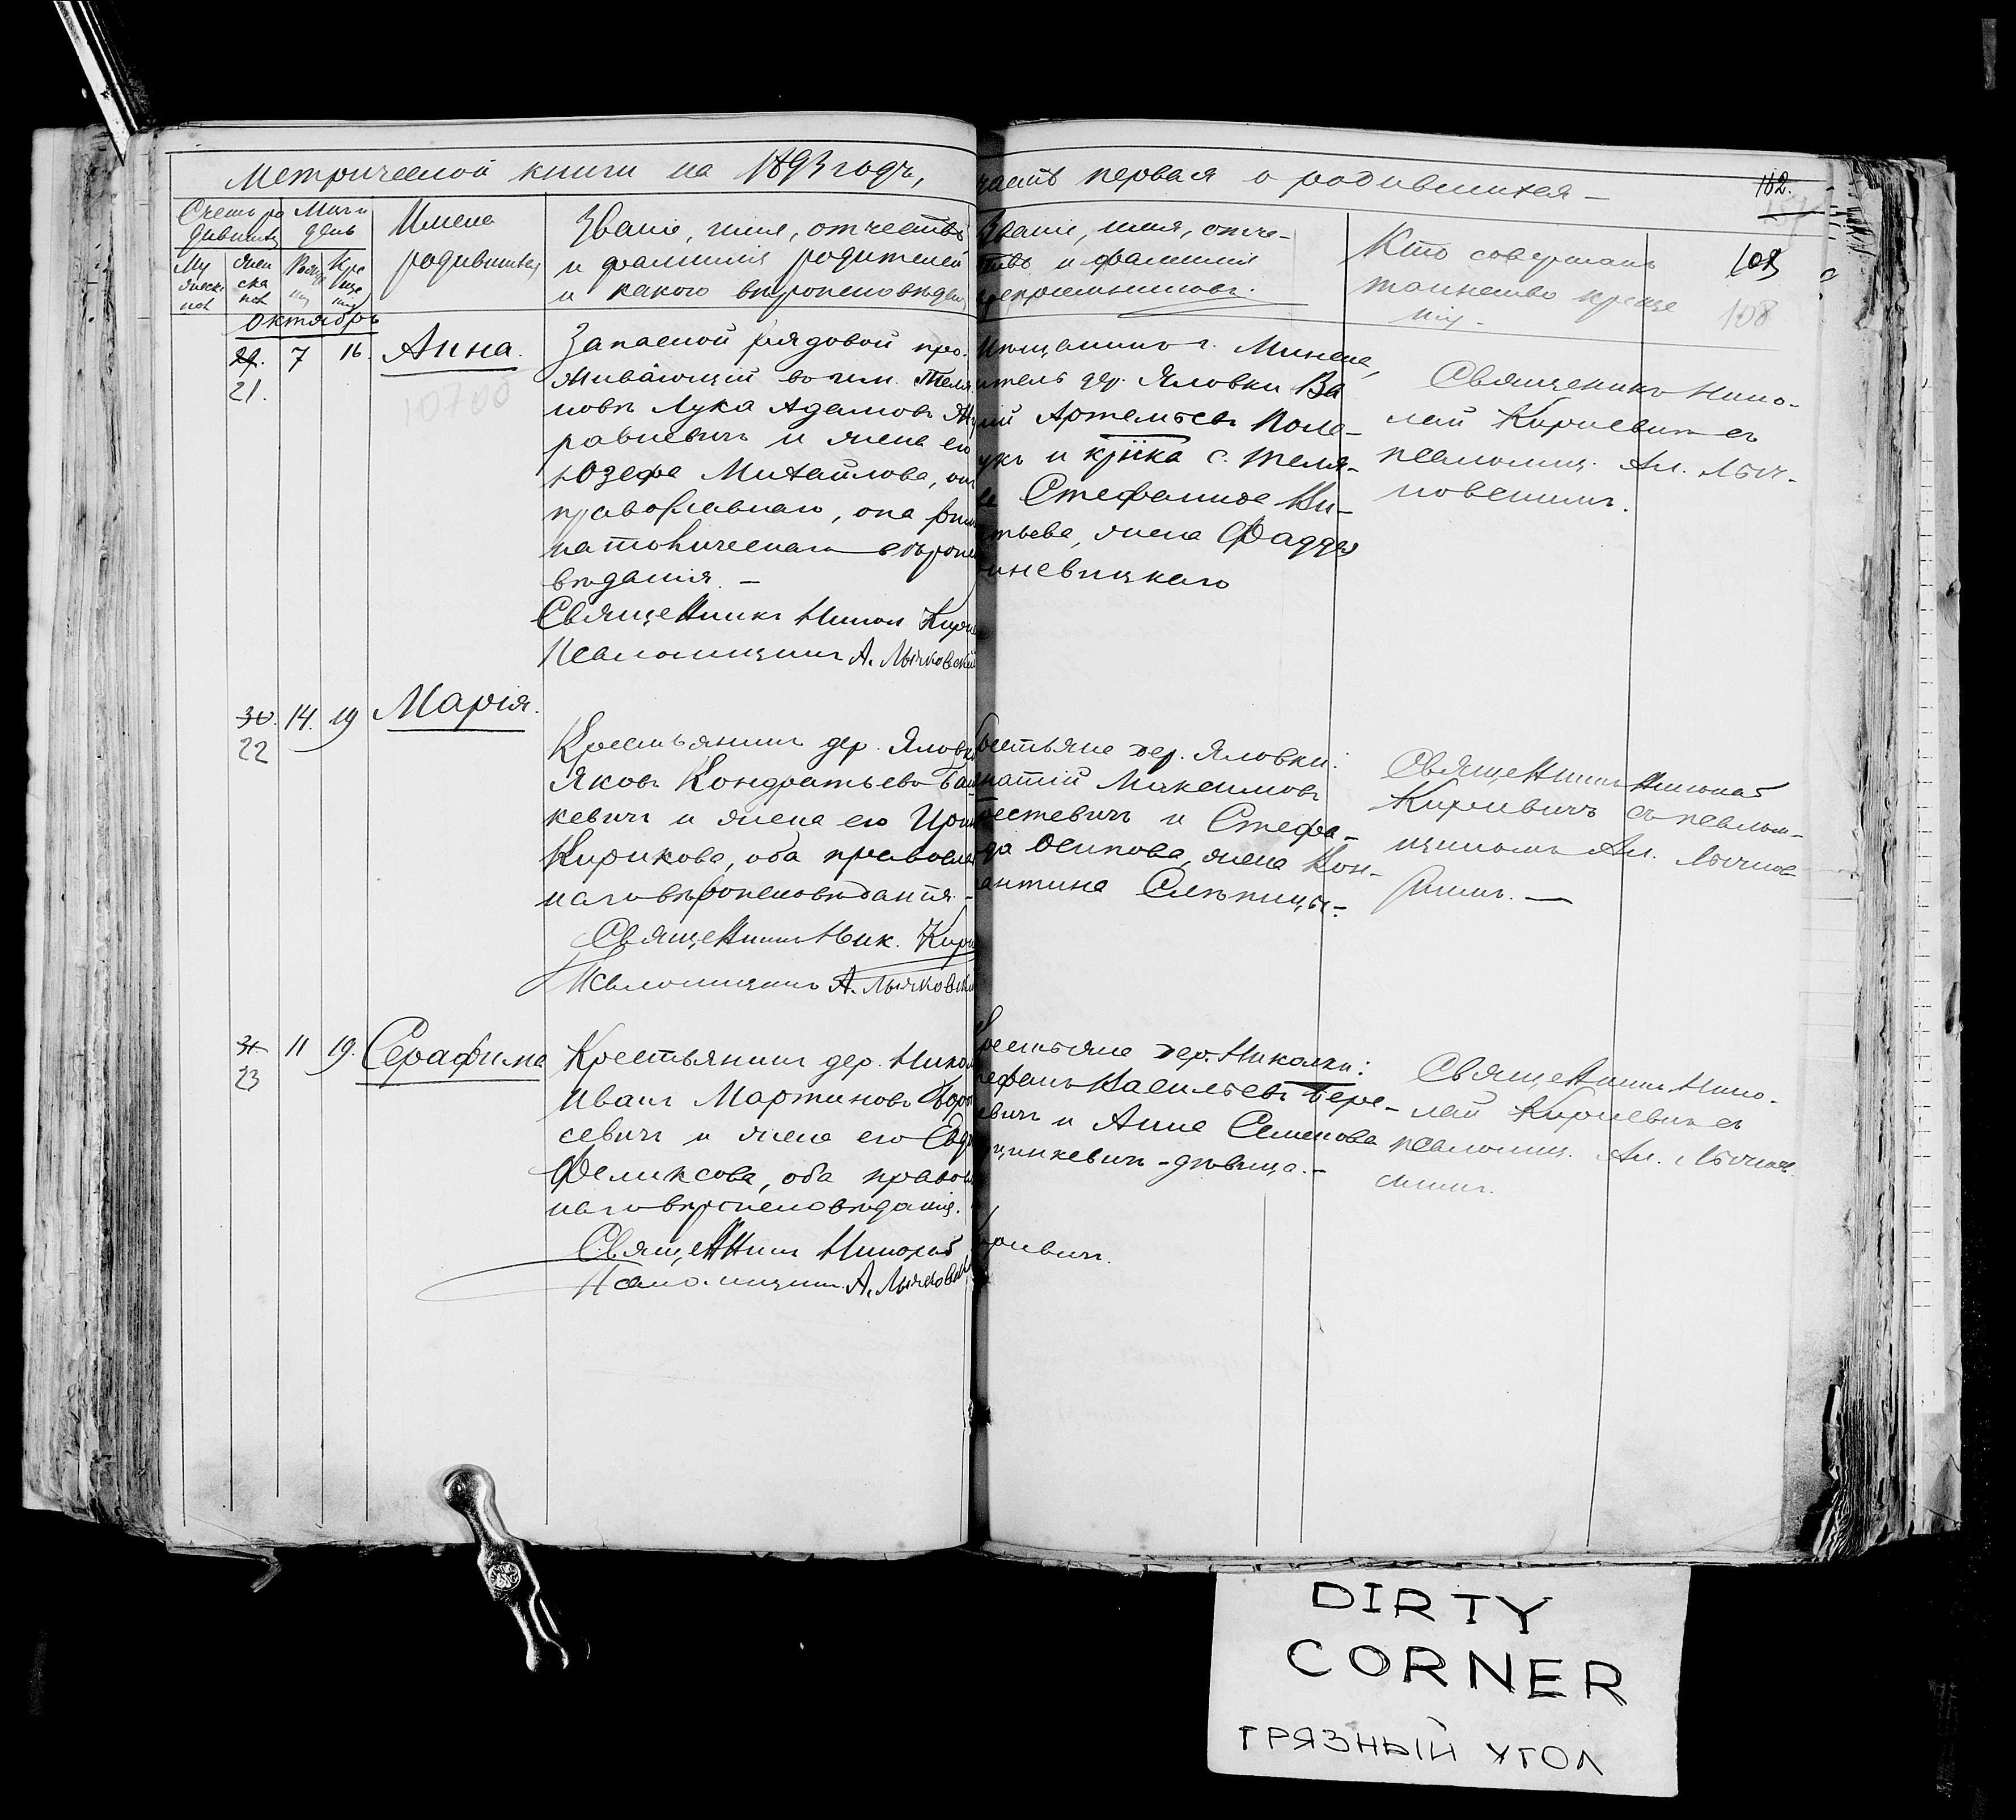 Метрической книги на 1893 годъ,
часть первая о родившихся
162.
Счетъ ро
дившихъ
Мѣсяцъ
день
Имена
родившихся
Званіе, имя, отчество
и фамилія родителей
и какого вѣроисповѣдан
Му
жеск
пол
Жен
ска
пол
Кре
ще
нія
Званіе, имя, отче-
тво и фамилія
Кто совершалъ
таинство креще
нія.
103
108
Октябрь
29.
21.
7
16.
Анна.
Запасной рядовой про-
живающій во им. Теля
Лука Адамовъ Жу
равневичъ и жена его
Юзефа Михайлова, он
православнаго, она рим
католическаго вѣроисп
вѣданія. —
Священникъ Никол Кири
Псаломщикъ А. Лычковскій
Мѣщанинъ г. Минска,
итель дер. Яловки Ва
лій Артемьевъ Поле-
укъ и кр̅нка с. Теля-
Стефанида Ки-
тьева, жена Фаддея
иневицкаго
Священникъ Нико-
лай Кириевичъ съ
псаломщ. Ал. Лыч-
ковскимъ.
30.
22
14.
19
Марія.
Крестьянинъ дер. Яловк
Яковъ Кондратьевъ Баш
кевичъ и жена его Ирин
Кирикова, оба православ
наго вѣроисповѣданія. -
Священникъ Ник. Кири
Псаломщикъ А. Лычковскі
рестьяне дер. Яловки:
натій Максимовъ
рестевичъ и Стефа-
да Осипова, жена Кон-
антина Слѣпицы.
Священникъ Николай
Кириевичъ съ псалом-
щикомъ Ал. Лычков
скимъ. —
31.
23
11
19.
Серафима
Крестьянинъ дер. Никол
Иванъ Мартиновъ Бор
севичъ и жена его Евд
Феликсова, оба правосл
наго вѣроисповѣданія.
Священникъ Николай
Псаломщикъ А. Лычковскі
рестьяне дер. Николки:
тефанъ Васильевъ Бере-
евичъ и Анна Семенова
цинкевичъ - дѣвица. -
ириевичъ.
Священникъ Нико-
лай Кириевичъ съ
псаломщ. Ал. Лычков
скимъ.
DIRTY
CORNER
ГРЯЗНЫЙ УГОЛ